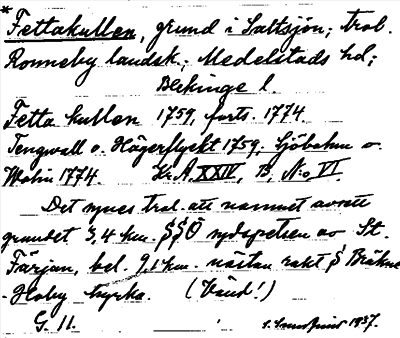 * Fettakullen, grund i Saltsjön; trol.
Ronneby landsk.; Medelstads hd;
Blekinge l.
Fetta kullen 1759, forts. 1774.
Tengwall o. Hägerflyckt 1759; Sjöbohm o.
Wolin 1774. Kr. A. XXIV, B, N:o VI.
Det synes trol. att namnet avsett
grundet 3,4 km. SSÖ sydspetsen av St.
Färjan, bel. 9,1 km. nästan rakt S Bräkne
-Hoby kyrka. (Vänd!)
G. 11. 1937.